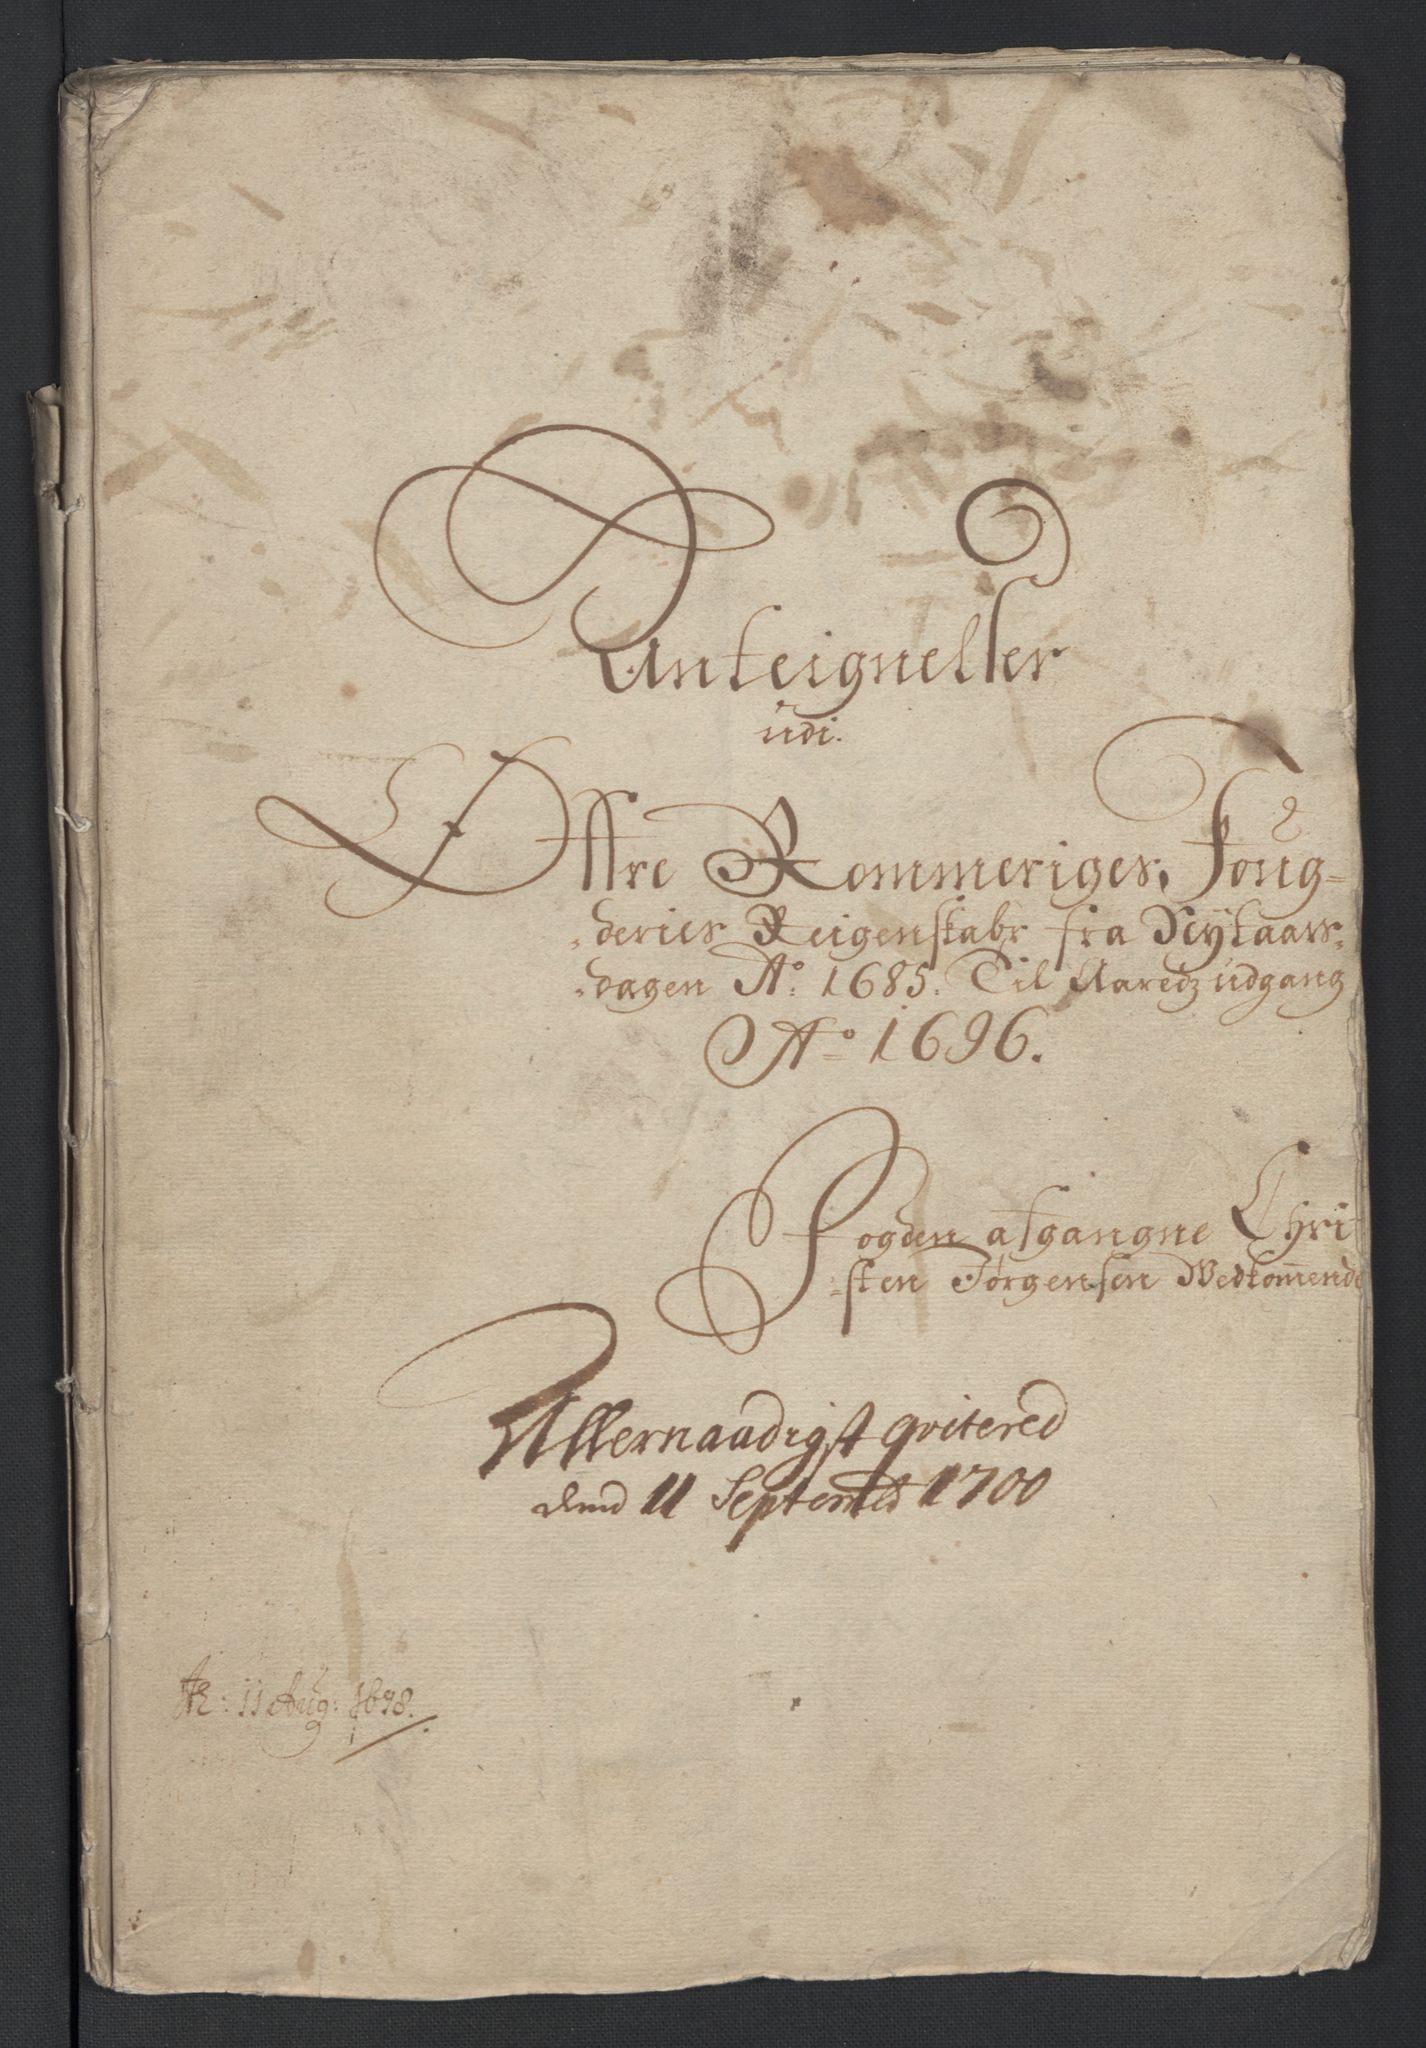 Anteignelser
udi.
Øffre Rommeriges, Foug=
=deries Reigenskabr fra Nytaars=
=dagen Aº. 1685. Til Aaredz udgang
Aº 1696.
Fogden afgangne Chri
=sten Jørgensen Vedkommende
Allernaadigst qvitered
dend 11 Septembr 1700
11 Aug: 1698.